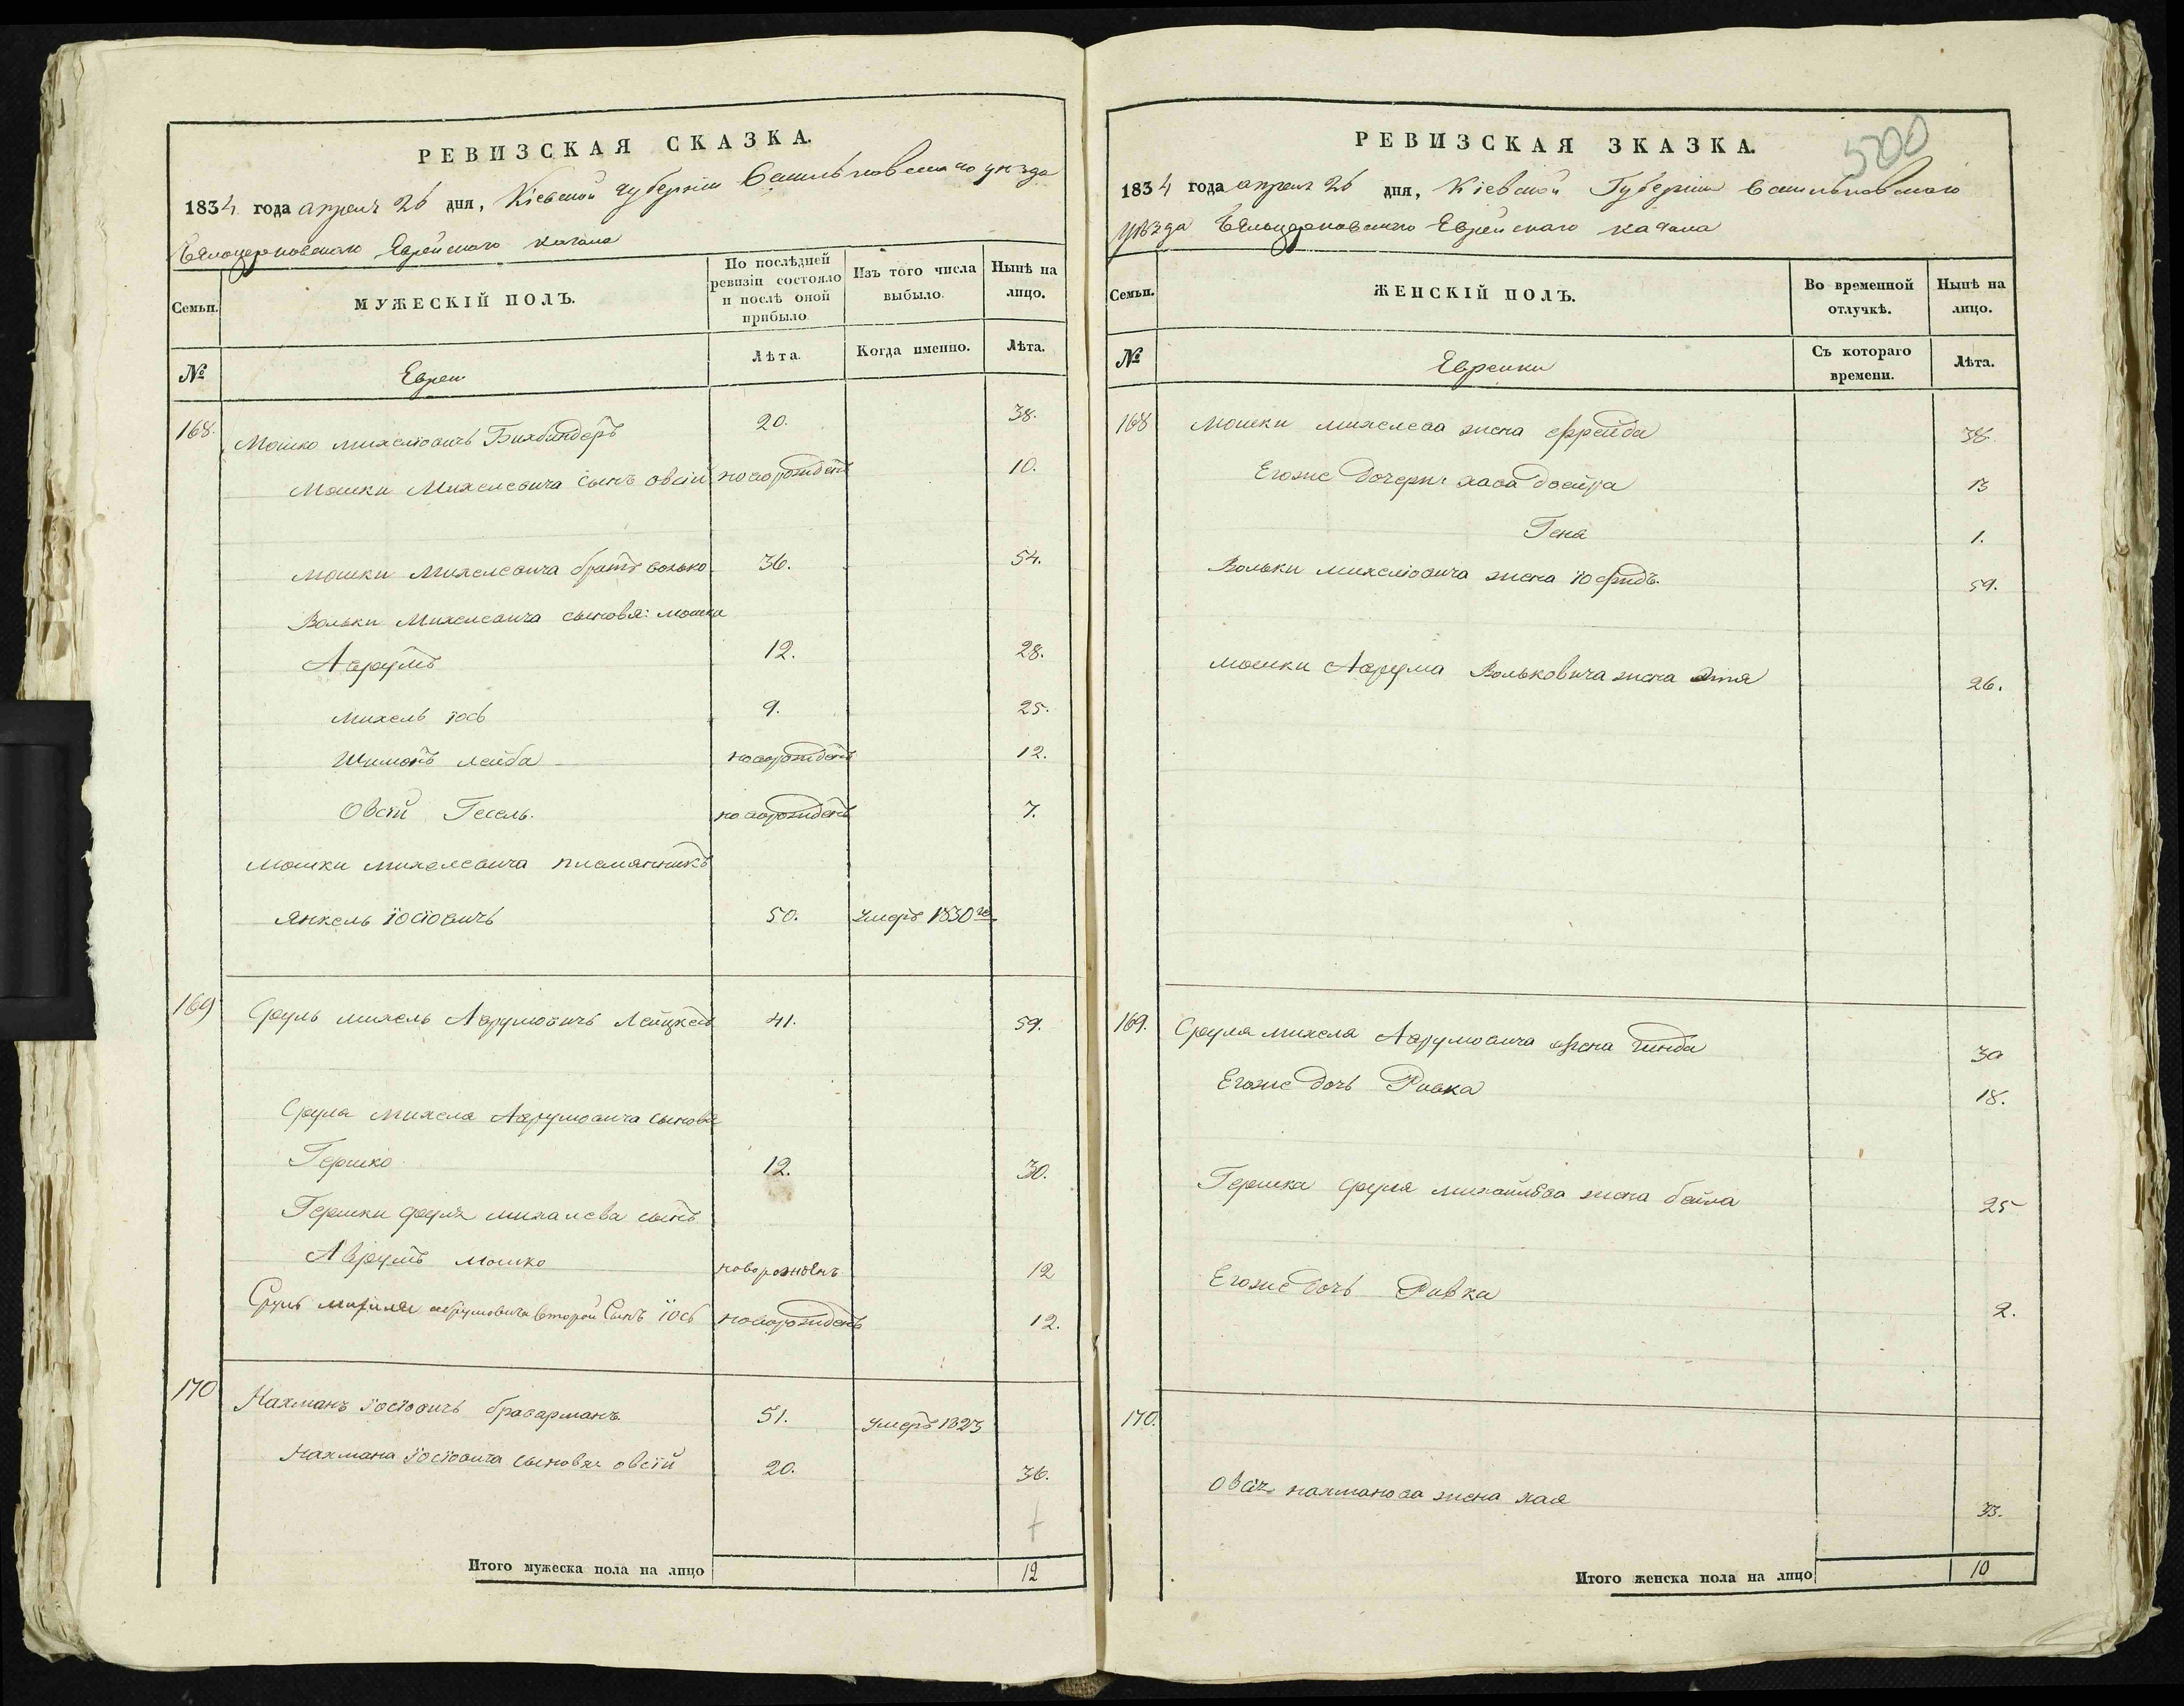 РЕВИЗСКАЯ СКАЗКА.
1834 года апреля 26 дня, Кіевской губерніи Васильковскаго уѣзда
Бѣлоцерковскаго Еврейскаго кагала
Семьи.
МУЖЕСКІЙ ПОЛЪ.
По послѣдней ревизіи состояло и послѣ оной прибыло
Изъ того числа выбыло.
Нынѣ на лицо.
№
Евреи
Лѣта.
Когда именно.
Лѣта.
168. Мошко михелювичъ Бухбиндеръ 20. 38.
Мошки Михелевича сынъ овсій новорожденъ 10.
Мошки Михелевича братъ волько 36. 54.
Вольки Михелевича сыновя: мошка
Аврумъ 12. 28.
михель іось 9. 25.
Шимонъ лейба новорожденъ 12.
Овсій Гесель. новорожденъ 7.
Мошки михелевича племянникъ
Янкель іосіовичъ 50. умеръ 1830го
169 Сруль михель Аврумовичъ 41. 59.
Сруля Михеля Аврумовича сыновя
Гершко 12. 30.
Гершки сруля михалева сынъ
Аврумъ мошко новорожденъ 12
Сруль михеля аврумовича второй Сынъ іось новорожденъ 12.
170 Нахманъ іосіовичъ браварманъ. 51. умеръ 1823
Нахмана іосіовича сыновя овсій 20. 36.
Итого мужеска пола на лицо 12
РЕВИЗСКАЯ ЗКАЗКА.
500
1834 года апреля 26 дня, Кіевской Губерніи Васильковскаго
уѣзда Бѣлоцерковскаго Еврейскаго кагала
Семьи.
ЖЕНСКІЙ ПОЛЪ.
Во временной отлучкѣ.
Нынѣ на лицо.
№
Еврейки
Съ котораго времени.
Лѣта.
168 Мошки михелева жена фрейда 38.
Егоже дочери: хава двейра 13
Гена 1.
Вольки михелювича жена 59.
мошки Аврума Вольковича жена Этя 26.
169. Сруля михеля Аврумовича жена гинда 39
Егоже дочь Ривка 18.
Гершка сруля михайлева жена бейла 25
Егоже дочь Ривка 2.
170.
Овсія нахманова жена хая 33.
Итого женска пола на лицо 10